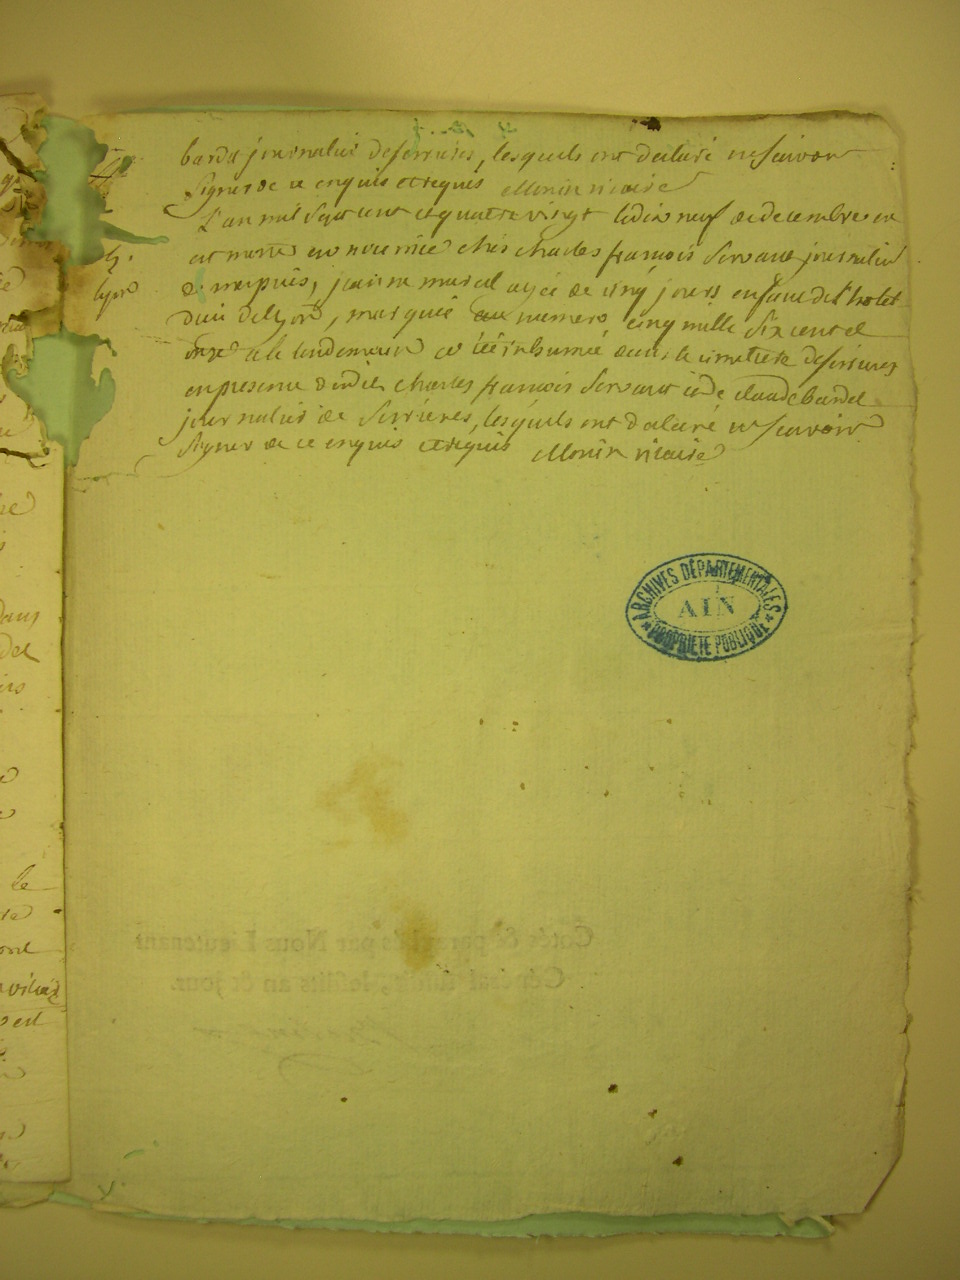 bardet journalier de serrieres, lesquels ont declaré ne scavoir
signer de ce enquis et requis Monin vicaire
L'an mil sept cent et quatre vingt le dix neuf de decembre
est morte en nourrice chés charles françois servant journalier
de, jeanne marcel agée de cinq jours enfant de l'hotel
dieu de lyon, marquée au numero cinq mille six cent et
onze et le lendemain a été inhumée dans le cimetiere de serrieres
en presence dudit charles françois servant et de claude bardet
journalier de serrieres, lesquels ont declaré ne scavoir
signer de ce enquis et requis Monin vicaire
ARCHIVES DÉPARTEMENTALES
AIN
PROPRIÉTÉ PUBLIQUE
Cotés & paraphés par Nous Lieutenant
Général susdit, lesdits an & jour.